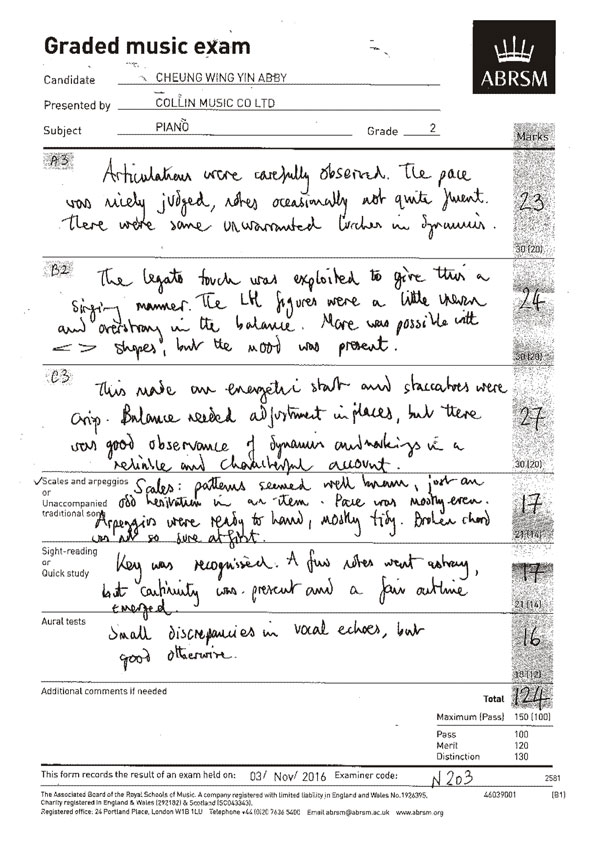 Graded music exam
ABRSM
Candidate CHEUNG WING YIN ABBY
Presented by COLLIN MUSIC CO LTD
Subject PIANO Grade 2
Marks
A3
Articulations were carefully observed. The pace
was nicely judged, notes occasionally not quite fluent.
There were some unwarranted lurches in dynamics.
23
30 (20)
B2
The legato touch was exploited to give this a
singing manner. The LH figures were a little uneven
and overstrong in the balance. More was possible with
< > shapes, but the mood was present.
24
30 (20)
C3
This made an energetic start and staccatos were
crisp. Balance needed adjustment in places, but there
was good observance of dynamic and markings in a
reliable and characterful account.
27
30 (20)
✓Scales and arpeggios
or
Unaccompanied
traditional song
Scales: patterns seemed well known, just an
odd hesitation in an item. Pace was mostly even.
Arpeggios were ready to hand, mostly tidy. Broken chord
was not so sure at first.
17
21 (14)
Sight-reading
or
Quick study
Key was recognised. A few notes went astray,
but continuity was present and a fair outline
emerged.
17
21 (14)
Aural tests
Small discrepancies in vocal echoes, but
good otherwise.
16
18 (12)
Additional comments if needed
Total 124
Maximum (Pass) 150 (100)
Pass 100
Merit 120
Distinction 130
This form records the result of an exam held on: 03/ Nov/ 2016 Examiner code: N203 2581
The Associated Board of the Royal Schools of Music. A company registered with limited liability in England and Wales No.1926395. 46039001 (B1)
Charity registered in England & Wales (292182) & Scotland (SC043343).
Registered office: 24 Portland Place, London W1B 1LU Telephone +44 (0)20 7636 5400 Email abrsm@abrsm.ac.uk www.abrsm.org